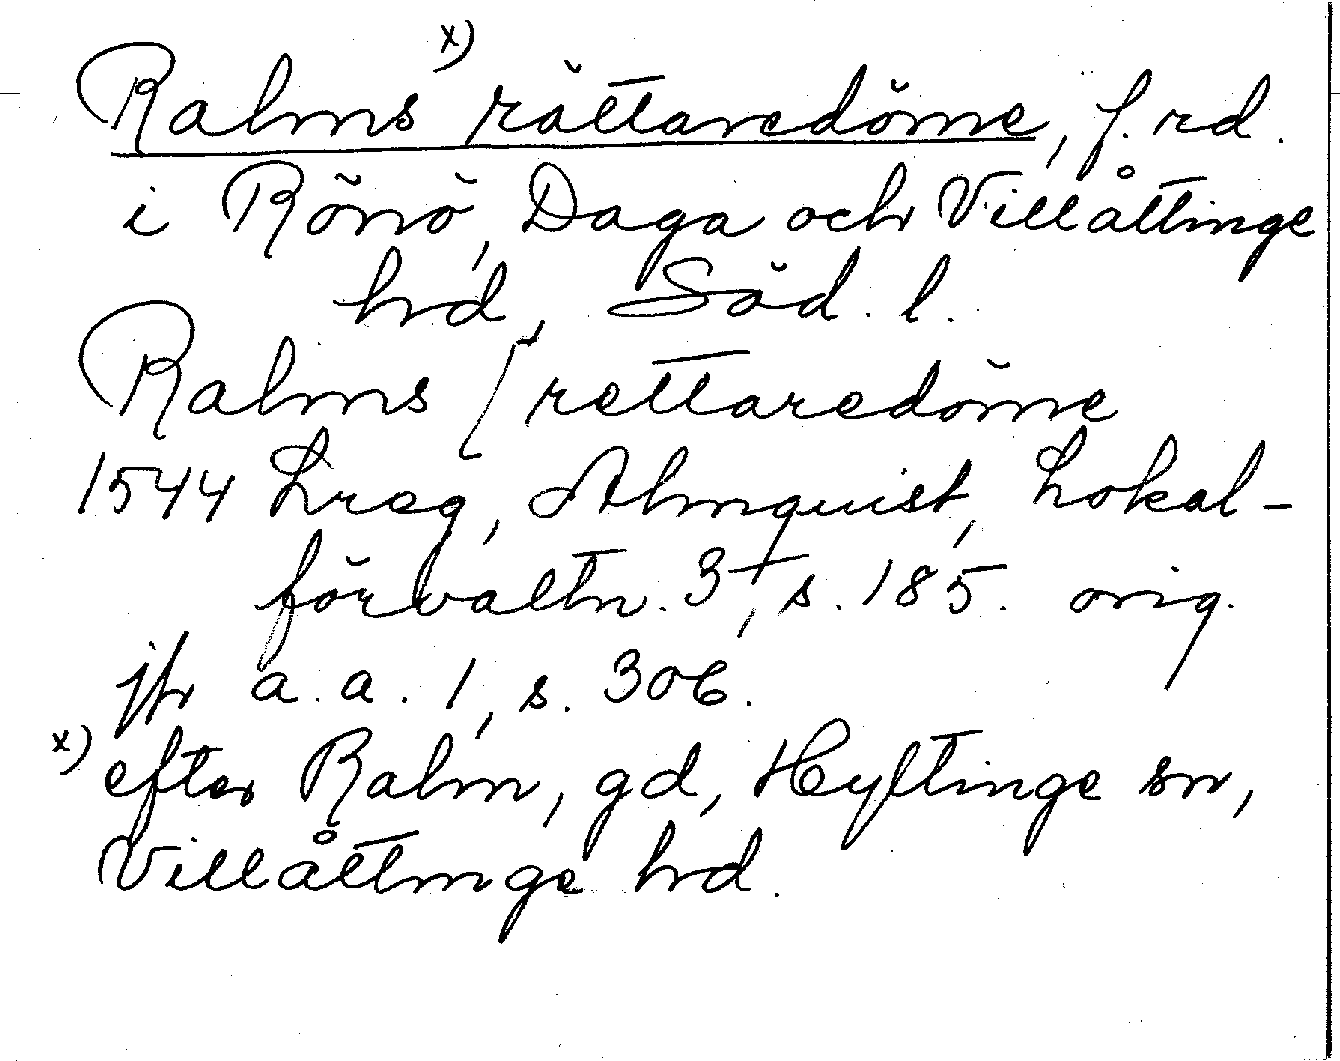 Ralms x) rättaredöme, f. rd.
i Rönö, Daga och Villåttinge
hd, Söd. l.
Ralms [rettaredöme
1544 Lreg, Almquist, Lokal-
förvaltn. 3, s. 185. orig.
jfr a.a. 1, s. 306.
x) efter Ralm, gd, Hyltinge sn,
Villåttinge hd.